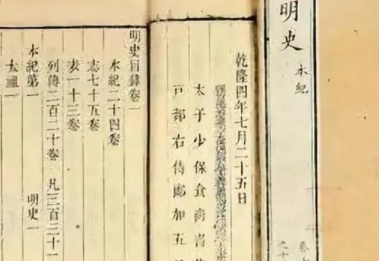 明史 本紀
乾隆四年七月二十五日
太子少保食尚書
戶部右侍郎加五
明史目錄卷一
本紀二十四卷
志七十五卷
表一十三卷
列傳二百二十卷 凡三百三十
本紀第一 明史一
太祖一